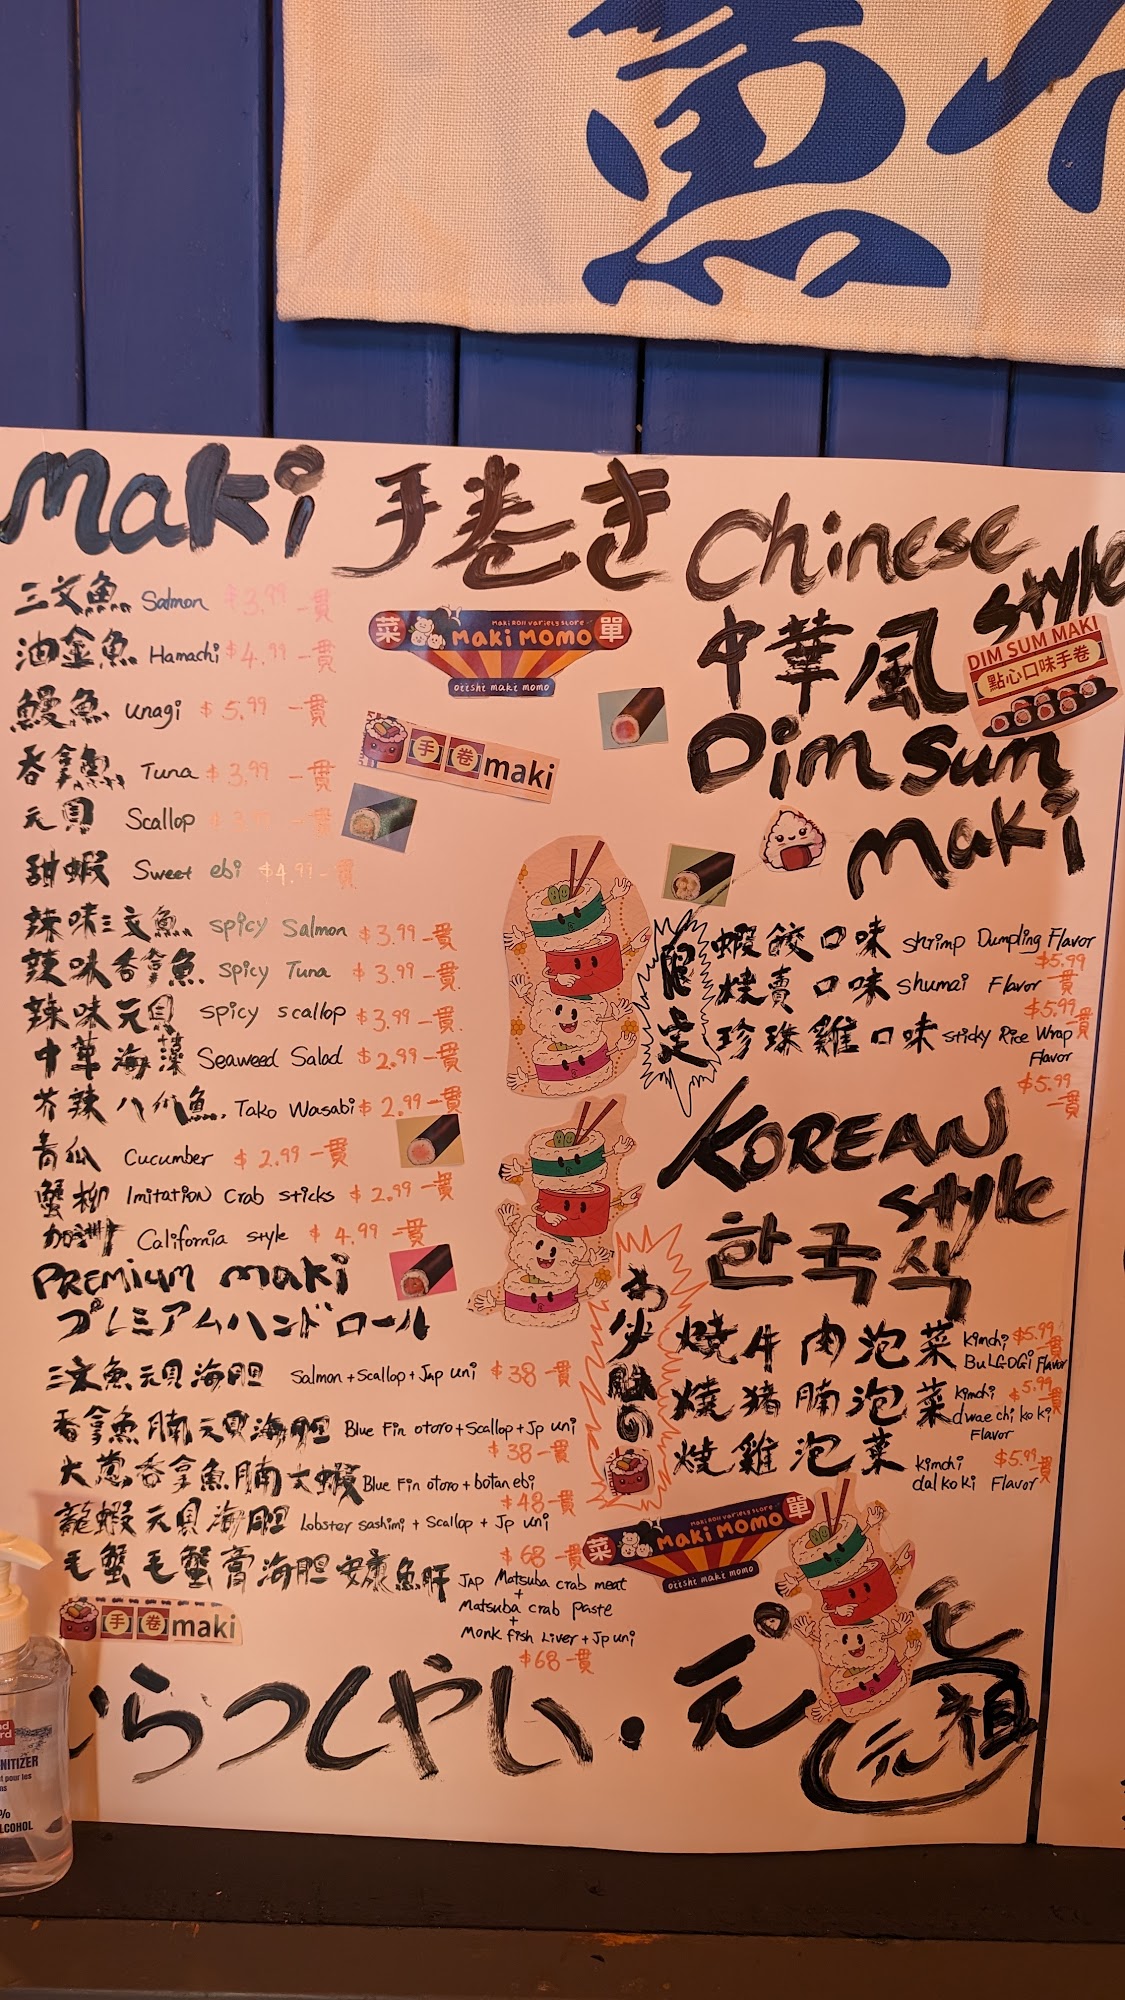 魚
Maki 手巻き
三文魚 Salmon $3.99 一貫
油金魚 Hamachi $4.99 一貫
鰻魚 unagi $5.99 一貫
吞拿魚 Tuna $3.99 一貫
元貝 Scallop 一貫
甜蝦 Sweet ebi $4.99 一貫
辣味三文魚 spicy Salmon $3.99 一貫
辣味吞拿魚 spicy Tuna $3.99 一貫
辣味元貝 spicy scallop $3.99 一貫
中華海藻 Seaweed Salad $2.99 一貫
芥辣八爪魚 Tako Wasabi $2.99 一貫
青瓜 Cucumber $2.99 一貫
蟹柳 Imitation Crab sticks $2.99 一貫
加洲 California style $4.99 一貫
PREMIUM maki
プレミアムハンドロール
三文魚元貝海胆 Salmon+Scallop+Jap uni $38 一貫
吞拿魚腩元貝海胆 Blue Fin otoro+Scallop+Jp uni
$38 一貫
大蔥吞拿魚腩大蝦 Blue Fin otoro+botan ebi
$48 一貫
龍蝦元貝海胆 Lobster sashimi + Scallop + Jp uni
$68 一貫
毛蟹毛蟹膏海胆安康魚肝 JAP Matsuba crab meat
+
Matsuba crab paste
+
Monk fish Liver + Jp uni
$68 一貫
菜 Maki Roll Variety Store
Maki MOMO 單
oiishi maki momo
手卷 maki
Chinese
style
中華風
DIM SUM MAKI
點心口味手卷
Dim Sum
Maki
限定
蝦餃口味 shrimp Dumpling Flavor
$5.99 一貫
燒賣口味 shumai Flavor
$5.99 一貫
珍珠雞口味 sticky Rice Wrap
Flavor
$5.99
一貫
KOREAN
style
한국식
燒牛肉泡菜 kimchi $5.99 一貫
BULGOGI Flavor
燒豬腩泡菜 kimchi $5.99 一貫
dwae chi ko ki
Flavor
燒雞泡菜 kimchi $5.99 一貫
dal ko ki Flavor
菜 Maki Roll Variety Store
Maki MOMO 單
oiishi maki momo
手卷 maki
らっしゃい・元
元祖
NITIZER
ALCOHOL